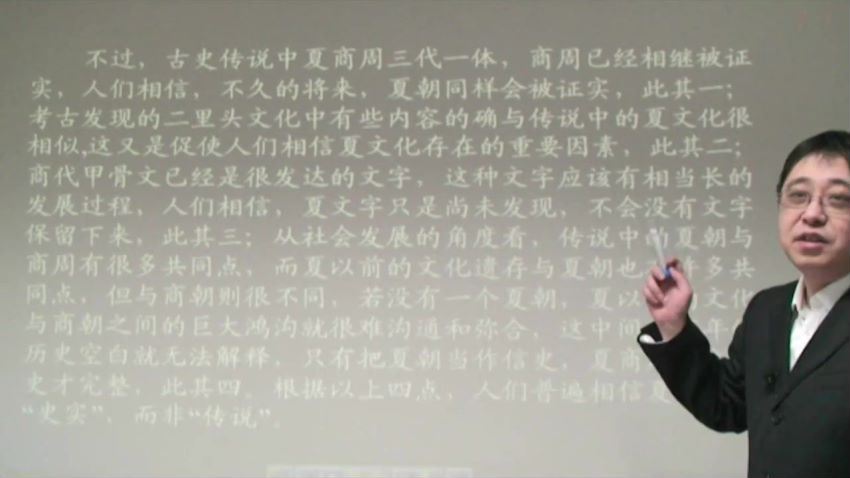 不过，古史传说中夏商周三代一体，商周已经相继被证
实，人们相信，不久的将来，夏朝同样会被证实，此其一；
考古发现的二里头文化中有些内容的确与传说中的夏文化很
相似,这又是促使人们相信夏文化存在的重要因素，此其二；
商代甲骨文已经是很发达的文字，这种文字应该有相当长的
发展过程，人们相信，夏文字只是尚未发现，不会没有文字
保留下来，此其三；从社会发展的角度看，传说中的夏朝与
商周有很多共同点，而夏以前的文化遗存与夏朝也 许多共
同点，但与商朝则很不同，若没有一个夏朝，夏以 文化
与商朝之间的巨大鸿沟就很难沟通和弥合，这中间 年
历史空白就无法解释，只有把夏朝当作信史，夏商
史才完整，此其四。根据以上四点，人们普遍相信夏
“史实”，而非“传说”。